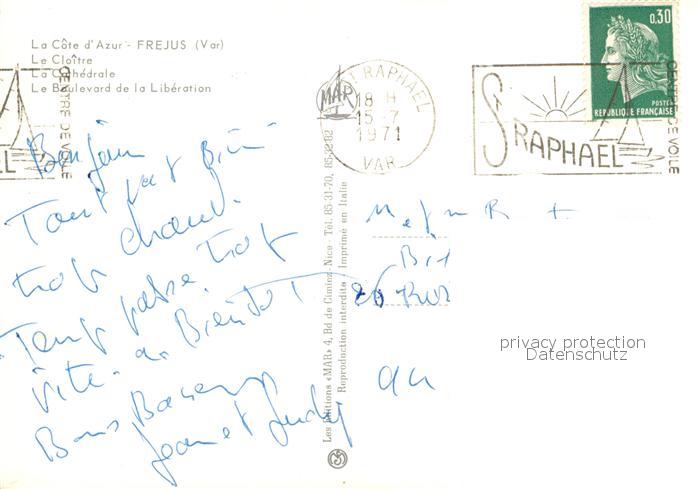 La Côte d'Azur - FREJUS (Var)
Le Cloître
La Cathédrale
Le Boulevard de la Libération
CENTRE DE VOILE
EL
ST RAPHAEL
MAR
18 H
15 - 7
1971
VAR
ST RAPHAEL
CENTRE DE VOILE
0,30
POSTES
REPUBLIQUE FRANÇAISE
Bonjour
Tout va Bien
trop chaud.
Temps passe trop
Vite. a Bientot
Bons Baisers
Jean et Judy
Les Editions «MAR» 4, Bd de Cimiez, Nice - Tél. 85-31-70, 85-12-82
Reproduction interdite - Imprimé en Italie
privacy protection
Datenschutz